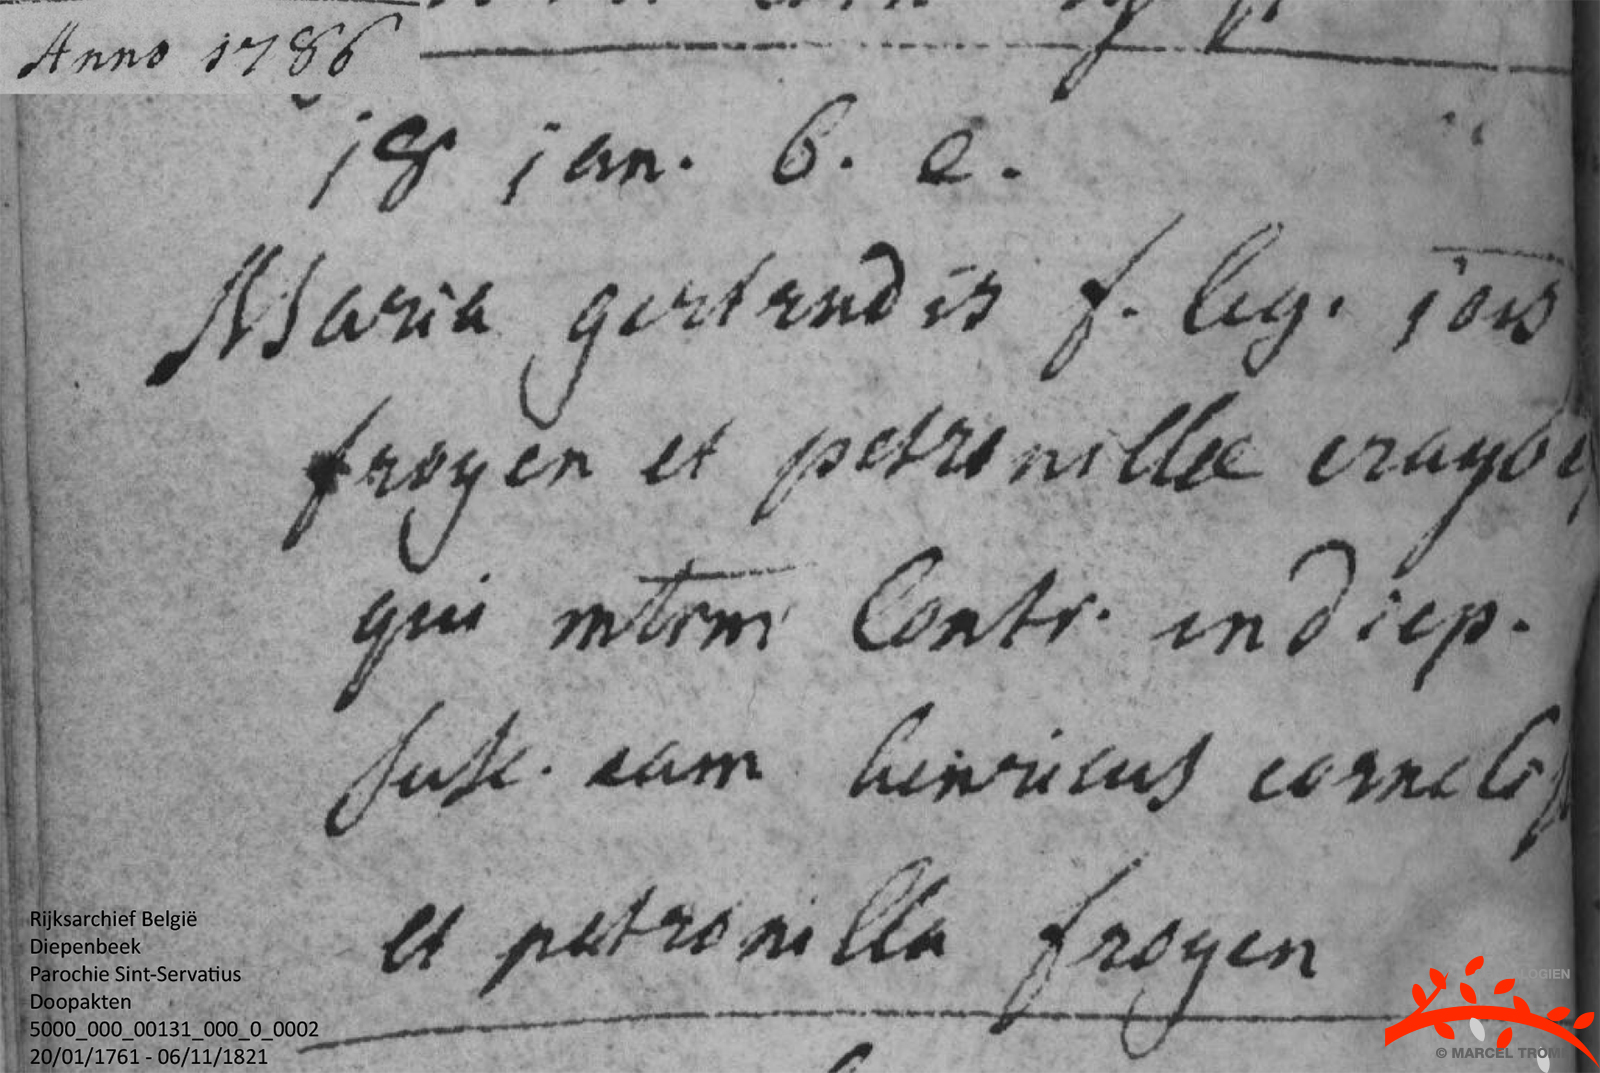 Anno 1786
18 jan. b. e.
Maria gertrudis f. leg. jois
froyen et petronillae craybe
qui mtrm Contr. in diep.
susc. eam henricus cornelis
et petronilla froyen
Rijksarchief België
Diepenbeek
Parochie Sint-Servatius
Doopakten
5000_000_00131_000_0_0002
20/01/1761 - 06/11/1821
LOGIEN
© MARCEL TRÒM